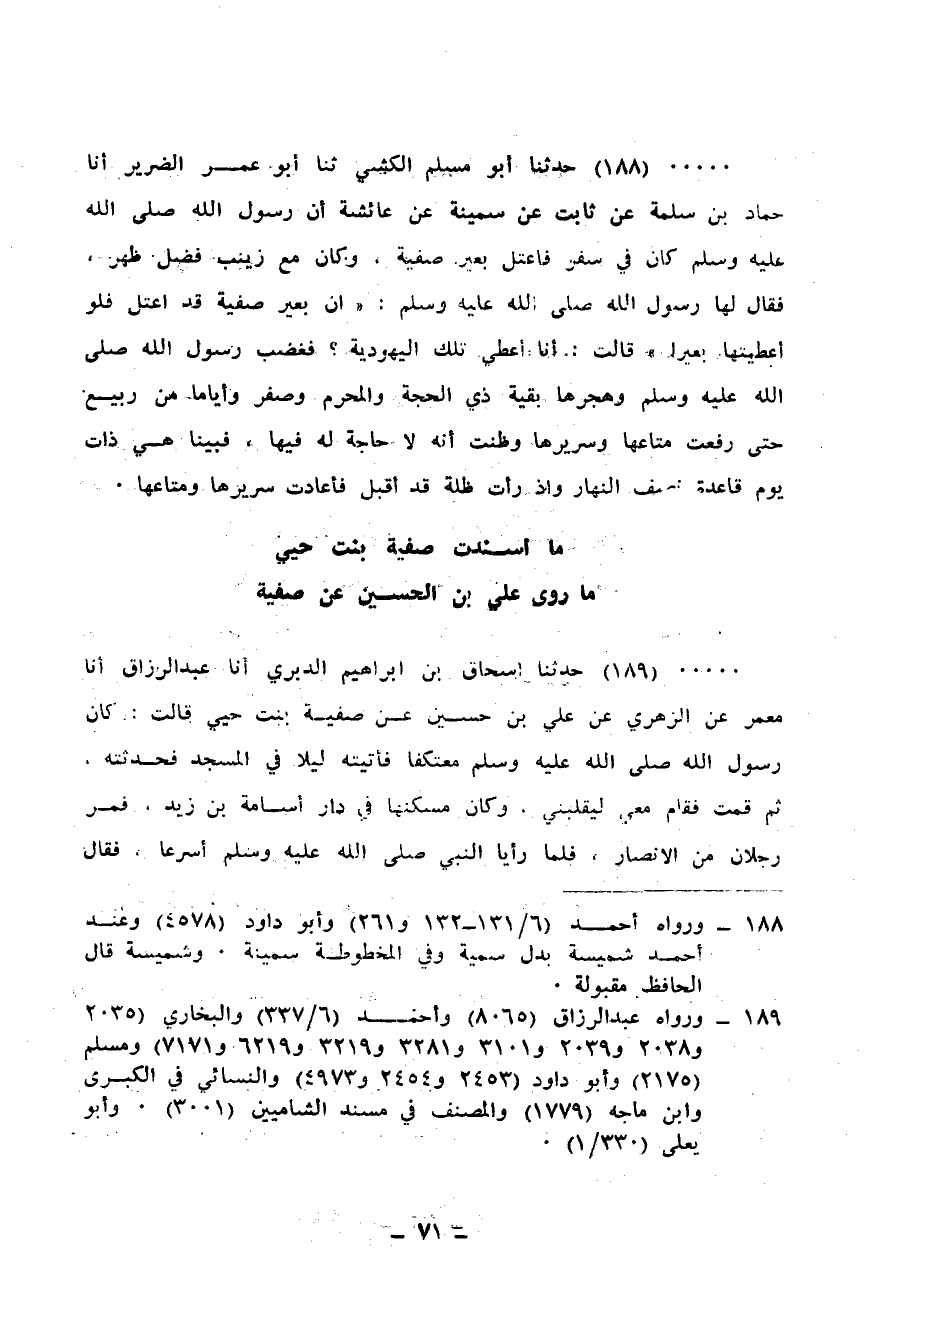 ٠٠٠٠٠ (١٨٨) حدثنا أبو مسلم الكشي ثنا أبو عمر الضرير أنا
حماد بن سلمة عن ثابت عن سمينة عن عائشة أن رسول الله صلى الله
عليه وسلم كان في سفر فاعتل بعير صفية ، وكان مع زينب فضل ظهر ،
فقال لها رسول الله صلى الله عليه وسلم : « ان بعير صفية قد اعتل فلو
أعطيتها بعيرا » قالت : أنا أعطي تلك اليهودية ؟ فغضب رسول الله صلى
الله عليه وسلم وهجرها بقية ذي الحجة والمحرم وصفر وأياما من ربيع
حتى رفعت متاعها وسريرها وظنت أنه لا حاجة له فيها ، فبينا هي ذات
يوم قاعدة نصف النهار واذ رأت ظلة قد أقبل فأعادت سريرها ومتاعها ٠
ما أسندت صفية بنت حيي
ما روى علي بن الحسين عن صفية
٠٠٠٠٠ (١٨٩) حدثنا إسحاق بن ابراهيم الدبري أنا عبدالرزاق أنا
معمر عن الزهري عن علي بن حسين عن صفية بنت حيي قالت : كان
رسول الله صلى الله عليه وسلم معتكفا فأتيته ليلا في المسجد فحدثته ،
ثم قمت فقام معي ليقلبني ، وكان مسكنها في دار أسامة بن زيد ، فمر
رجلان من الانصار ، فلما رأيا النبي صلى الله عليه وسلم أسرعا ، فقال
١٨٨ ــ ورواه أحمد (٦/١٣١ــ١٣٢ و٢٦١) وأبو داود (٤٥٧٨) وعند
أحمد شميسة بدل سمية وفي المخطوطة سمينة ٠ وشميسة قال
الحافظ مقبولة ٠
١٨٩ ــ ورواه عبدالرزاق (٨٠٦٥) وأحمد (٦/٣٣٧) والبخاري (٢٠٣٥
و٢٠٣٨ و٢٠٣٩ و٣١٠١ و٣٢٨١ و٣٢١٩ و٦٢١٩ و٧١٧١) ومسلم
(٢١٧٥) وأبو داود (٢٤٥٣ و٢٤٥٤ و٤٩٧٣) والنسائي في الكبرى
وابن ماجه (١٧٧٩) والمصنف في مسند الشاميين (٣٠٠١) ٠ وأبو
يعلى (١/٣٣٠) ٠
ــ ٧١ ــ